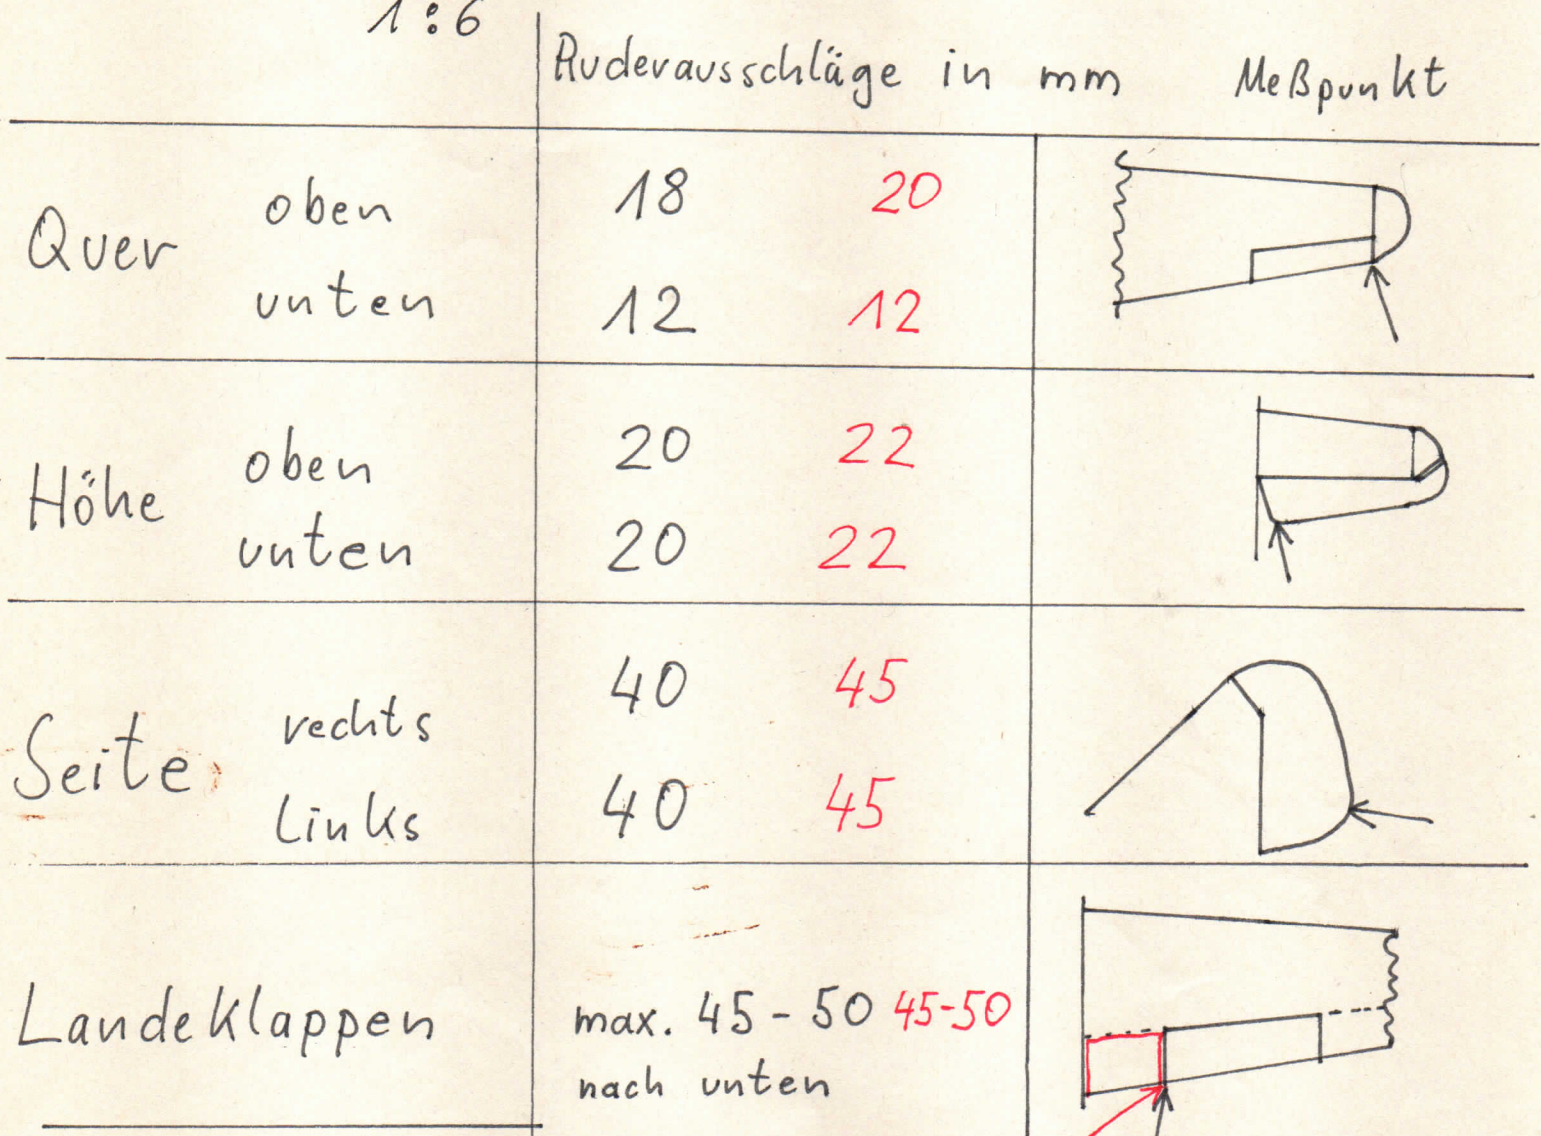 1:6
Ruderausschläge in mm Meßpunkt
Quer oben 18 20
unten 12 12
Höhe oben 20 22
unten 20 22
Seite rechts 40 45
Links 40 45
Landeklappen max. 45 - 50 45-50
nach unten